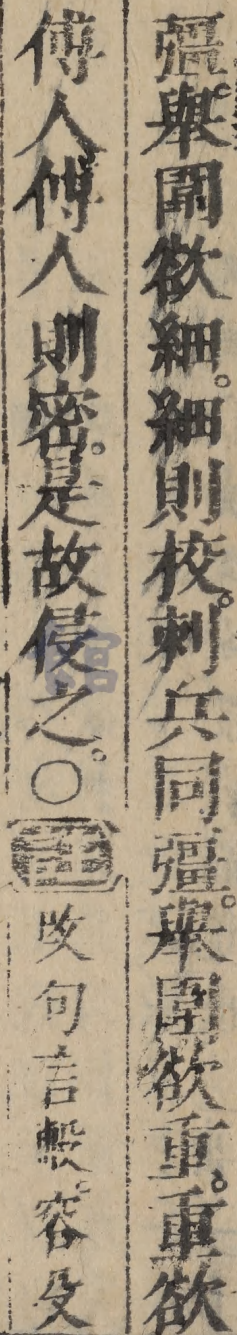 彊。舉圍欲細。細則校。刺兵同彊。舉圍欲重。重欲
傅人傅人則密。是故侵之。○改句言毄。容殳
館